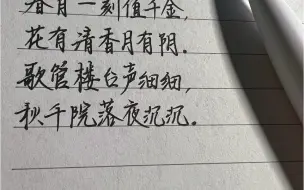 春宵一刻值千金,
花有清香月有阴.
歌管楼台声细细,
秋千院落夜沉沉.